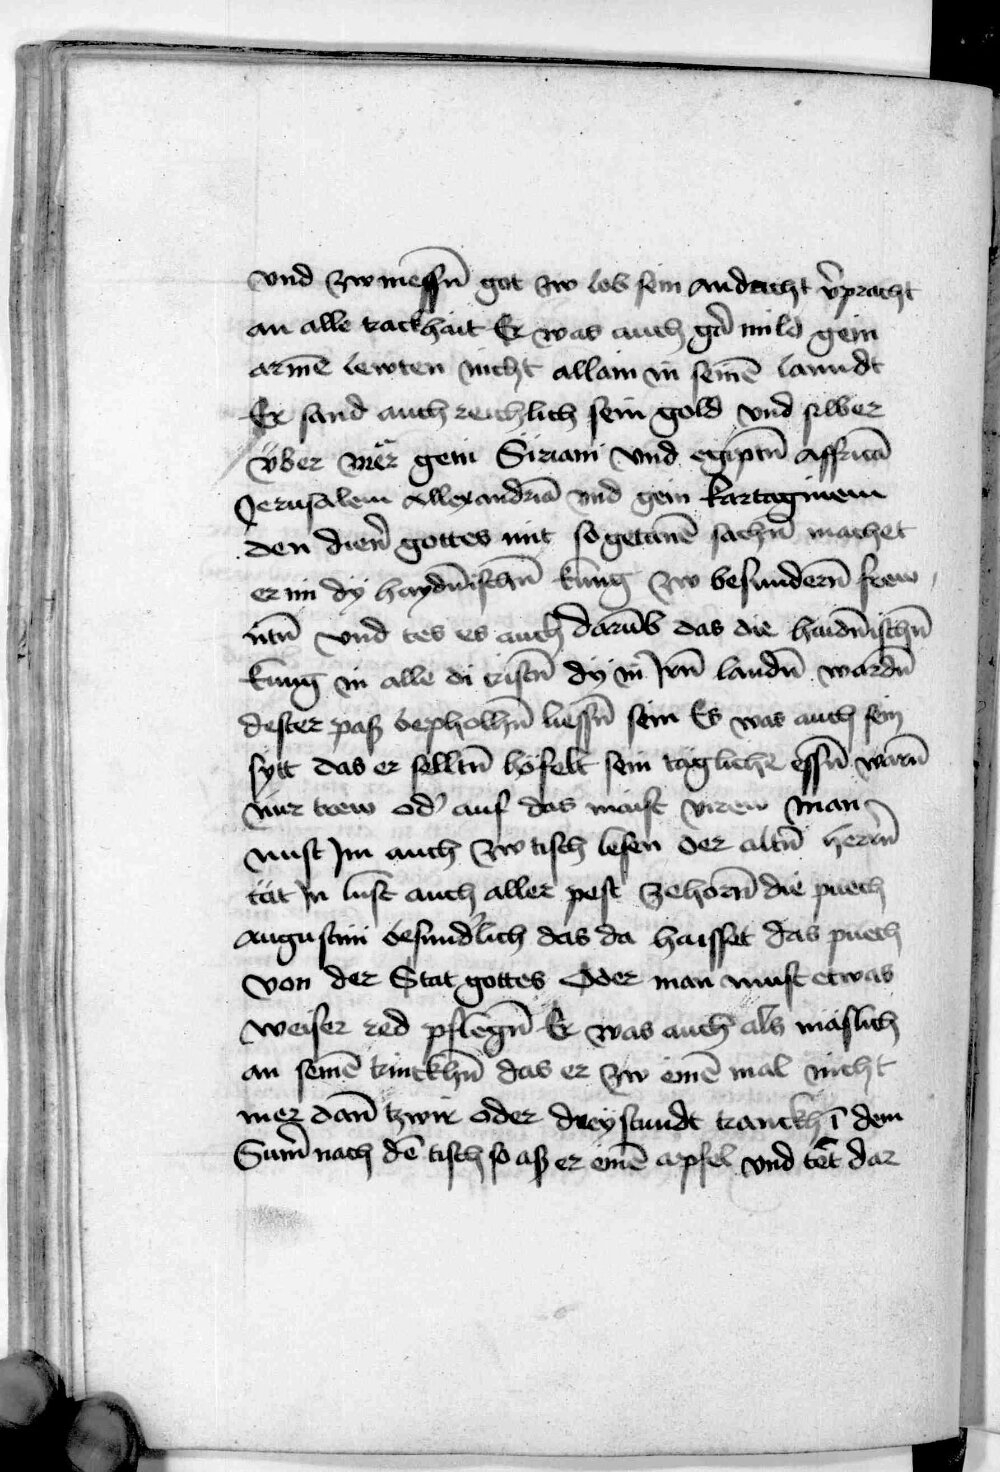 vnd zw messn̄ got zw lob sein andacht v̄pracht
an alle trackhait Er was auch gar̄ mild gein
armē lewten nicht allain in seinē lanndt
Er sand auch reichlich sein gold vnd silber
vber mer gein Siriam vnd egiptn̄ affricā
Jerusalem Allexandriā vnd gein kartaginem
den dien̄ gottes mit so getanē sachn̄ machet
er im dy haydn̄ischn̄ kunig zw besundern̄ frew
ntn̄ vnd tet es auch darūb das die haidn̄ischn̄
kunig in alle di cristn̄ dy in Irn̄ landn̄ wardn̄
dester pas bepholhn̄ liessn̄ sein Es was auch sein
sytt das er selltn̄ hofelt sein täglichē essn̄ warn̄
nur trew od' auf das maist viren man
must Im auch zw tisch lesen der altn̄ herrn̄
tät In lust auch aller pest zehorn̄ die puech
augustini besund'lich das da haisset das puech
von der Stat gottes Oder man must etwas
weiser red pflegn̄ Er was auch als mäslich
an seinē trinckhn̄ das er zw einē mal nicht
mer dan̄ tzwir oder dreystundt tranckh ī dem
Sum̄ nach dē tisch so as er einē apfel vnd tet dar